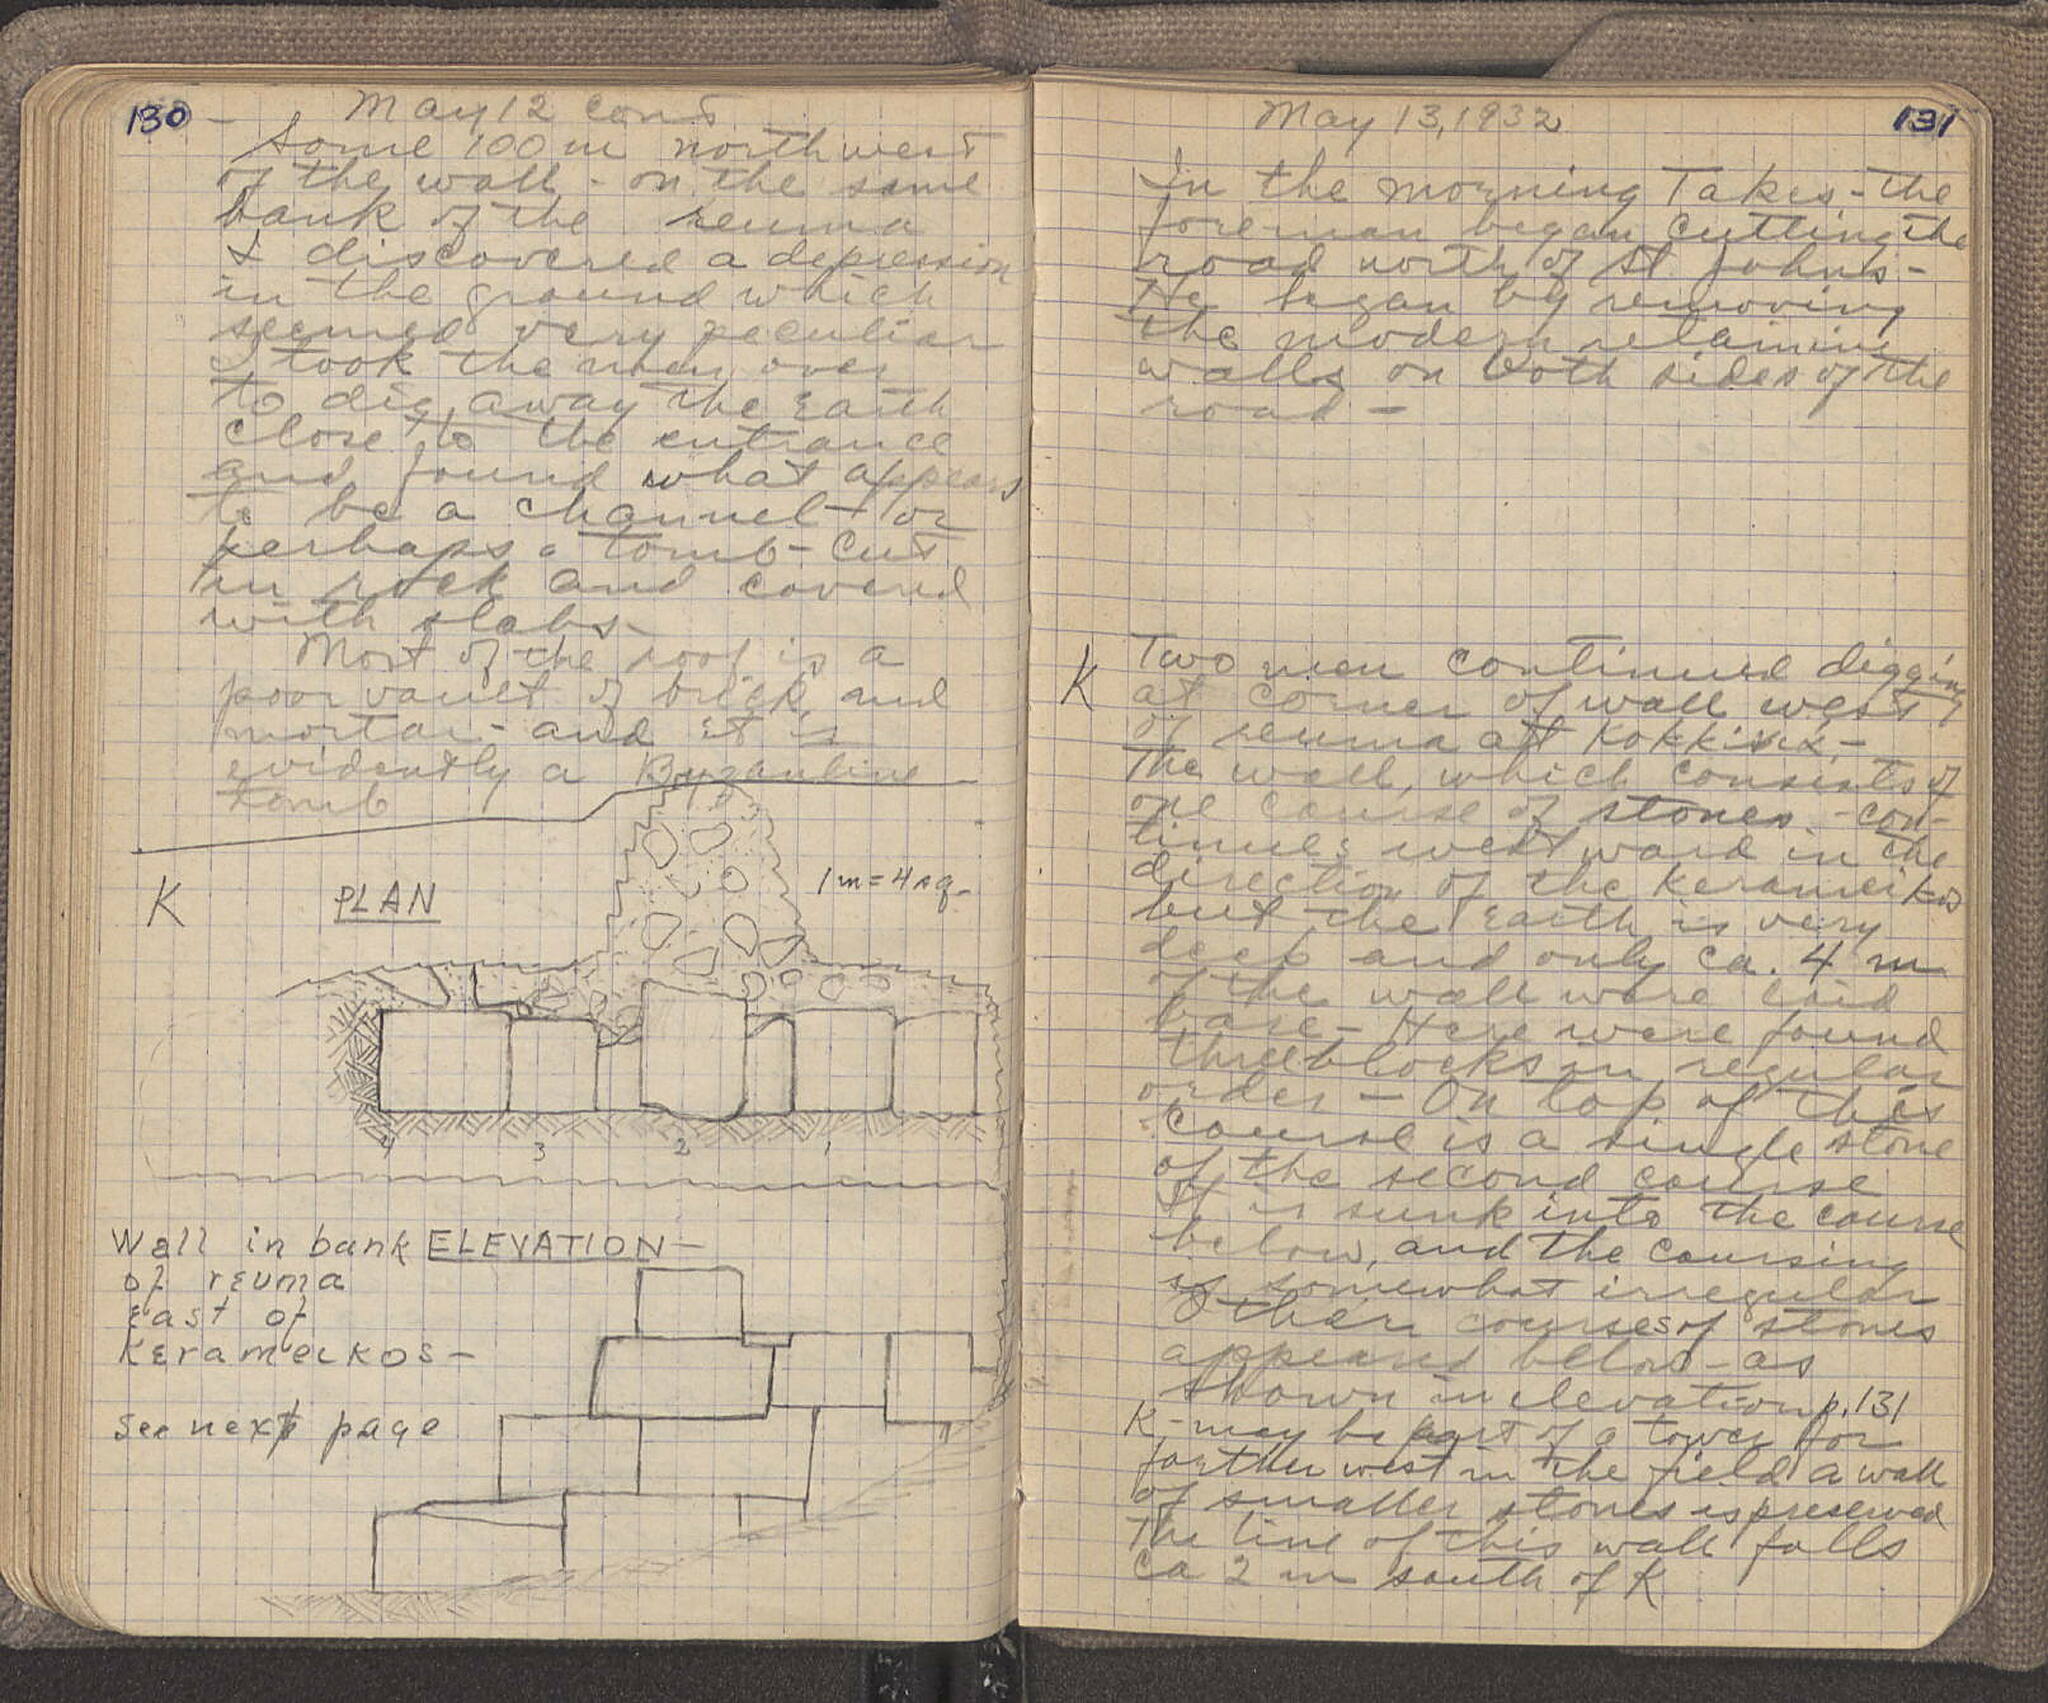 130
May 12 cont
Some 100 m northwest
of the wall - on the same
bank of the reuma
I discovered a depression
in the ground which
seemed very peculiar
I took the men over
to dig away the earth
close to the entrance
and found what appears
to be a channel - or
perhaps a tomb - cut
in rock and covered
with slabs -
Most of the roof is a
poor vault of brick and
mortar - and it is
evidently a Byzantine
tomb
K PLAN 1 m = 4 sq.
4 3 2 1
Wall in bank ELEVATION -
of reuma
East of
Kerameikos -
See next page
131
May 13, 1932
In the morning Takis - the
foreman began cutting the
road north of St. John's -
He began by removing
the modern retaining
walls on both sides of the
road -
K Two men continued digging
at corner of wall west
of reuma at Kokkinia -
The wall, which consists of
one course of stones - con-
tinues westward in the
direction of the Kerameikos
but the earth is very
deep and only ca. 4 m
of the wall were laid
bare - Here were found
three blocks in regular
order - On top of this
course is a single stone
of the second course
It is sunk into the course
below, and the coursing
is somewhat irregular
Other courses of stones
appeared below - as
shown in elevation p. 131
K - may be part of a tower for
farther west in the field a wall
of smaller stones is preserved
The line of this wall falls
ca 2 m south of K